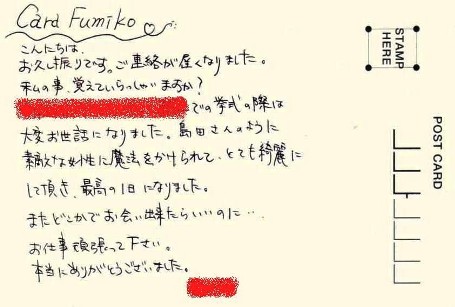 Card Fumiko
こんにちは.
お久し振りです。ご連絡が遅くなりました。
私の事、覚えていらっしゃいますか?
での挙式の際は
大変お世話になりました。島田さんのように
素敵な女性に魔法をかけられて、とても綺麗に
して頂き、最高の1日になりました。
またどこかでお会い出来たらいいのに…
お仕事頑張って下さい。
本当にありがとうございました。
STAMP
HERE
POST CARD